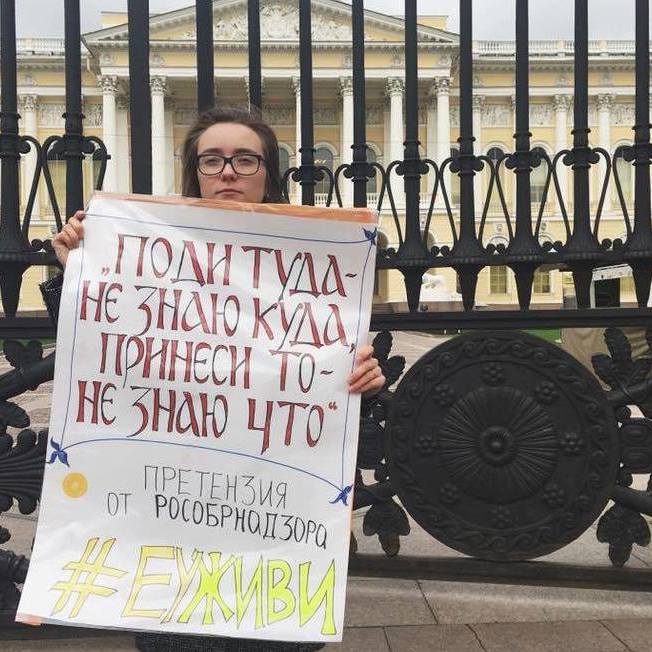 „ПОДИ ТУДА-
НЕ ЗНАЮ КУДА,
ПРИНЕСИ ТО-
НЕ ЗНАЮ ЧТО“
ПРЕТЕНЗИЯ
ОТ РОСОБРНАДЗОРА
#ЕУЖИВИ